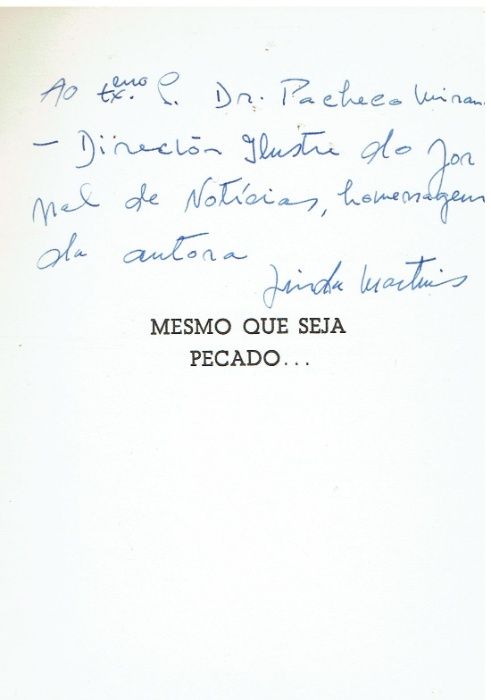 Ao Ex.mo S. Dr. Pacheco Miran
— Director Ilustre do Jor
nal de Notícias, homenagem
da autora
Linda Martins
MESMO QUE SEJA
PECADO...